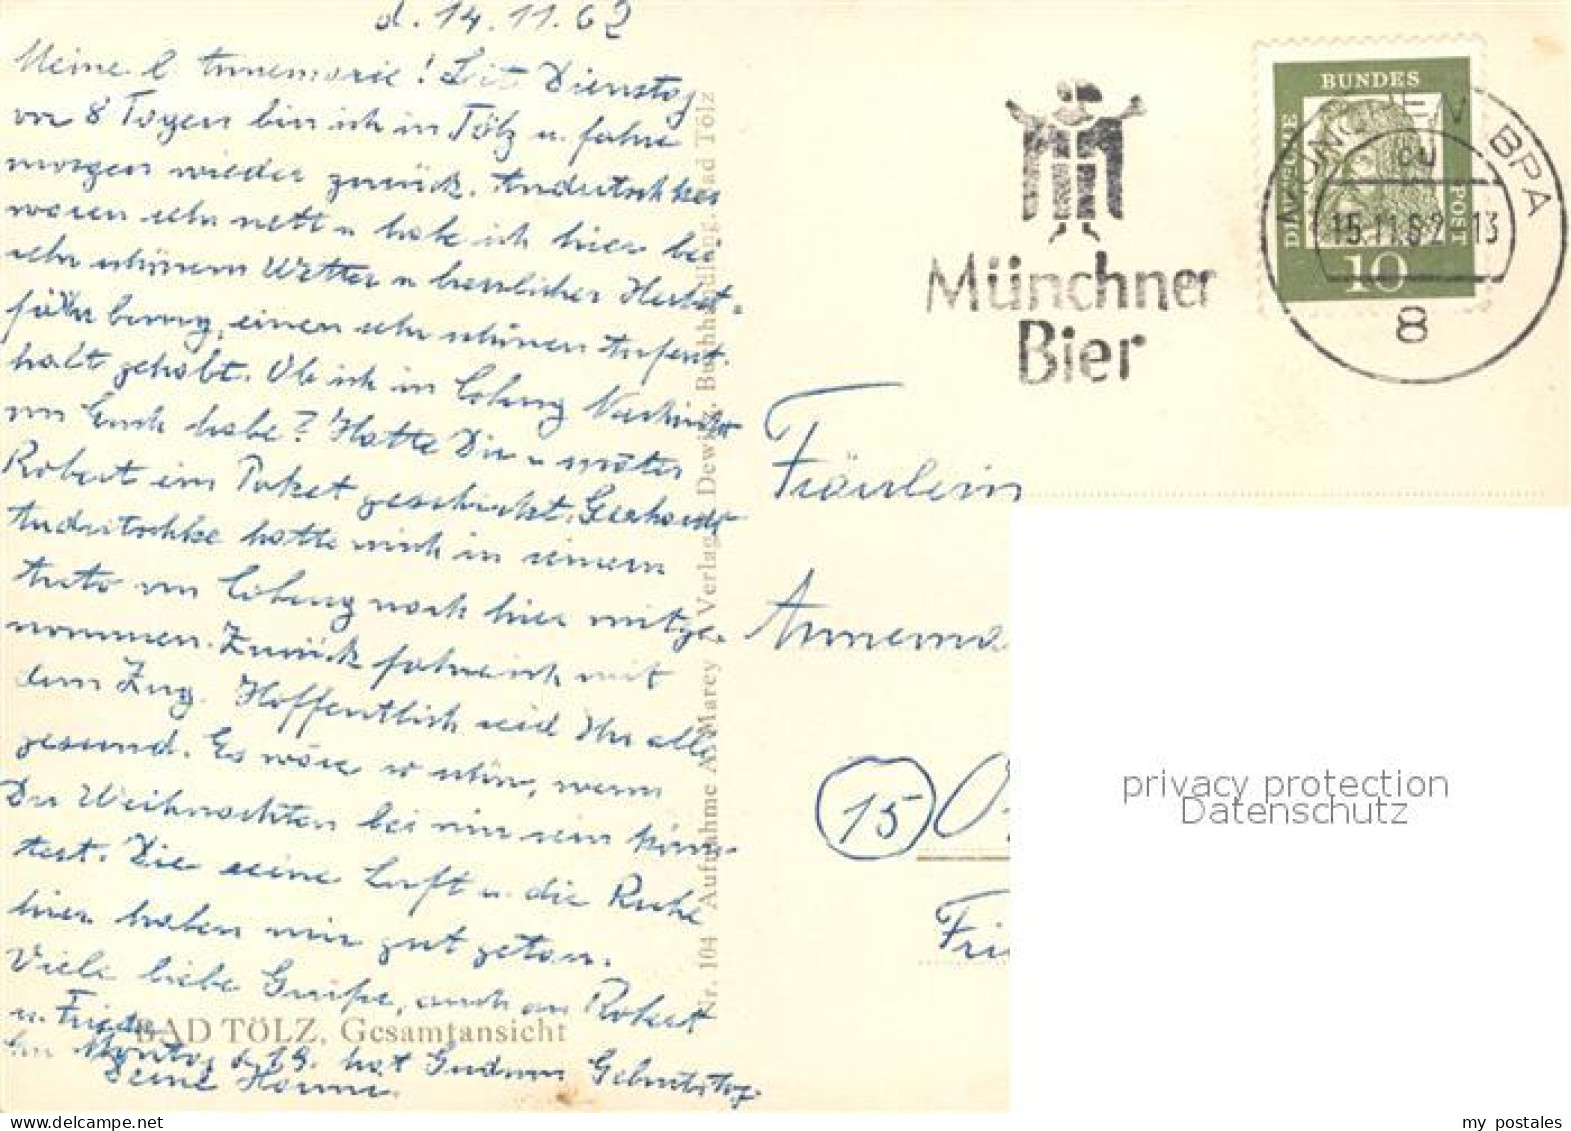 d. 14.11.62
Meine l. Annemarie! Seit Dienstag
vor 8 Tagen bin ich in Tölz u. fahre
morgen wieder zurück. Andritschkes
waren sehr nett u habe ich hier bei
sehr schönem Wetter u herrlicher Herbst-
färbung, einen sehr schönen Aufent-
halt gehabt. Ob ich in Coburg Nachricht
von Euch habe? Hatte Dir u
Robert ein Paket geschickt. Gerhard
Andritschke hatte mich in seinem
Auto von Coburg nach hier mitge-
nommen. Zurück fahre ich mit
dem Zug. Hoffentlich seid Ihr alle
gesund. Es wäre so schön, wenn
Du Weihnachten bei mir sein könn-
test. Die reine Luft u. die Ruhe
hier haben mir gut getan.
Viele liebe Grüße, auch an Robert
u. Frieda
Am Montag d. 19. hat Gudrun Geburtstag.
Deine Hanna.
BAD TÖLZ, Gesamtansicht
Nr. 104 Aufnahme A. Marcy / Verlag Dewitz, Buchhandlung, Bad Tölz
Münchner
Bier
DEUTSCHE
BUNDES
POST
10
MÜNCHEN BPA
15.11.62-13
8
Fräulein
Annema
15
Fri
privacy protection
Datenschutz
my postales